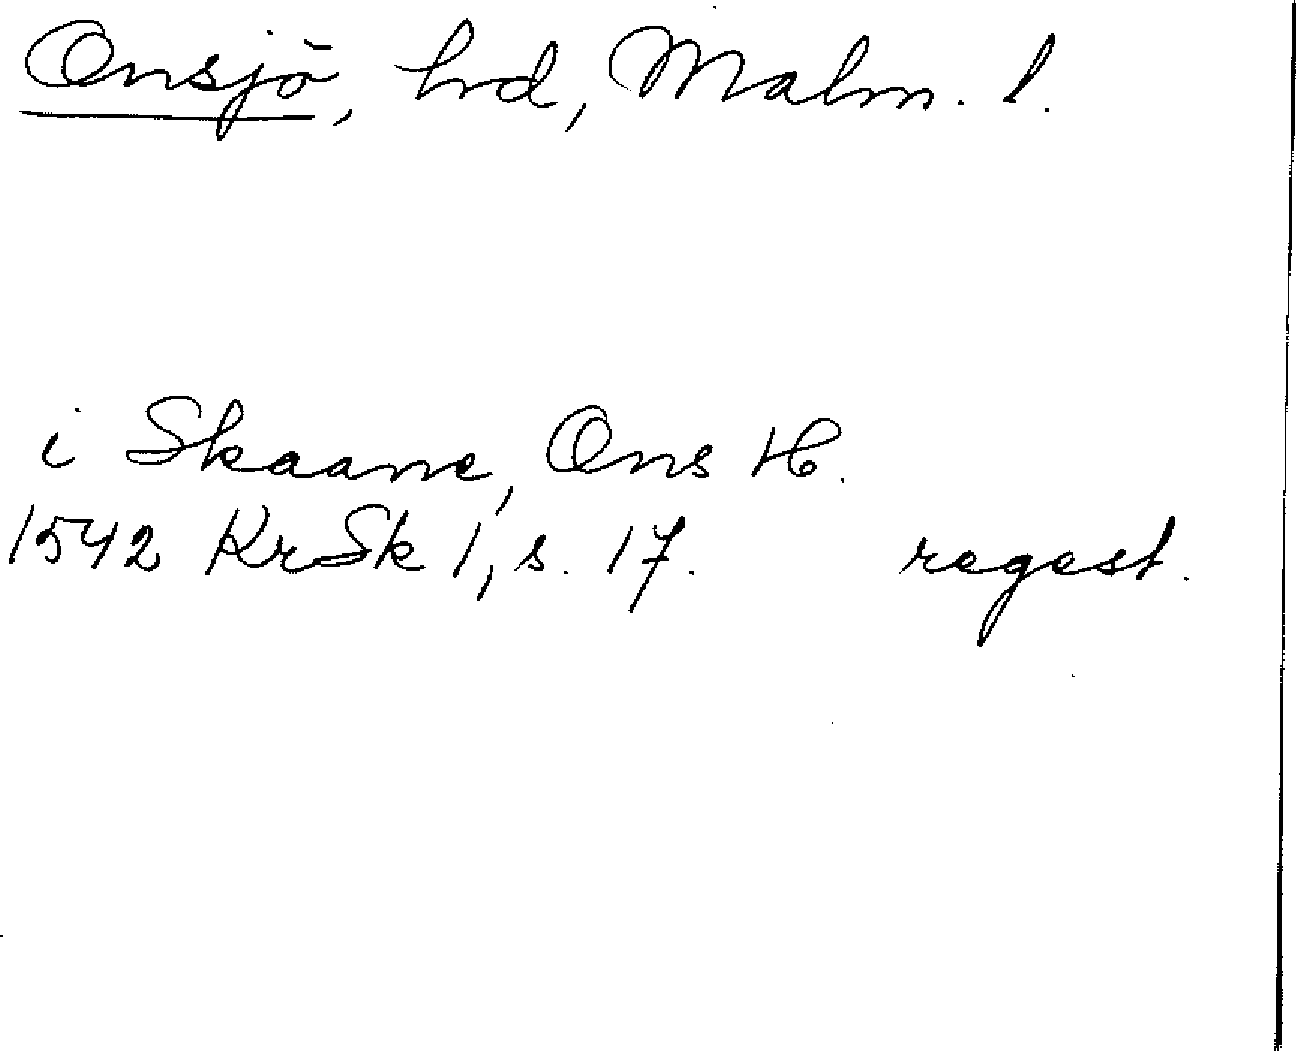 Onsjö, hrd, Malm. l.
i Skaane, Ons H.
1542 KrSk 1, s. 17. regest.